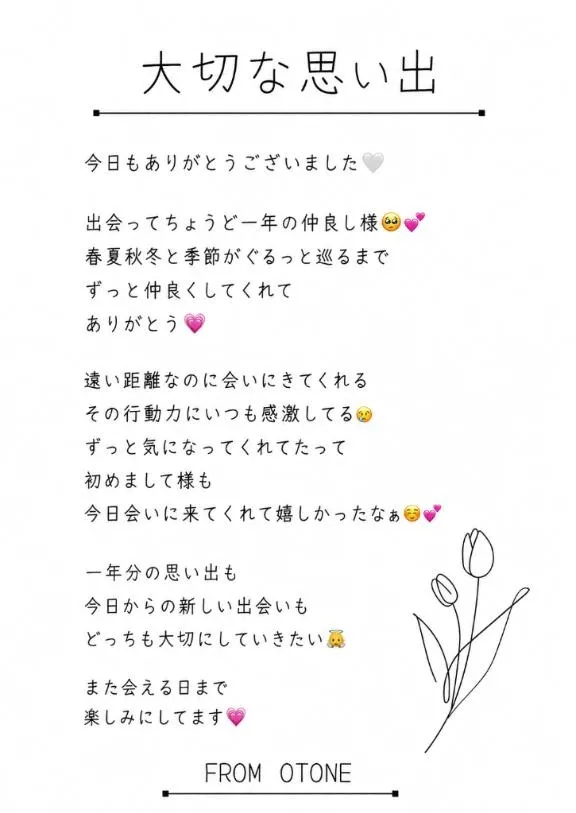 大切な思い出
今日もありがとうございました🤍
出会ってちょうど一年の仲良し様🥺💕
春夏秋冬と季節がぐるっと巡るまで
ずっと仲良くしてくれて
ありがとう💗
遠い距離なのに会いにきてくれる
その行動力にいつも感激してる😢
ずっと気になってくれてたって
初めまして様も
今日会いに来てくれて嬉しかったなぁ☺️💕
一年分の思い出も
今日からの新しい出会いも
どっちも大切にしていきたい👼
また会える日まで
楽しみにしてます💗
FROM OTONE